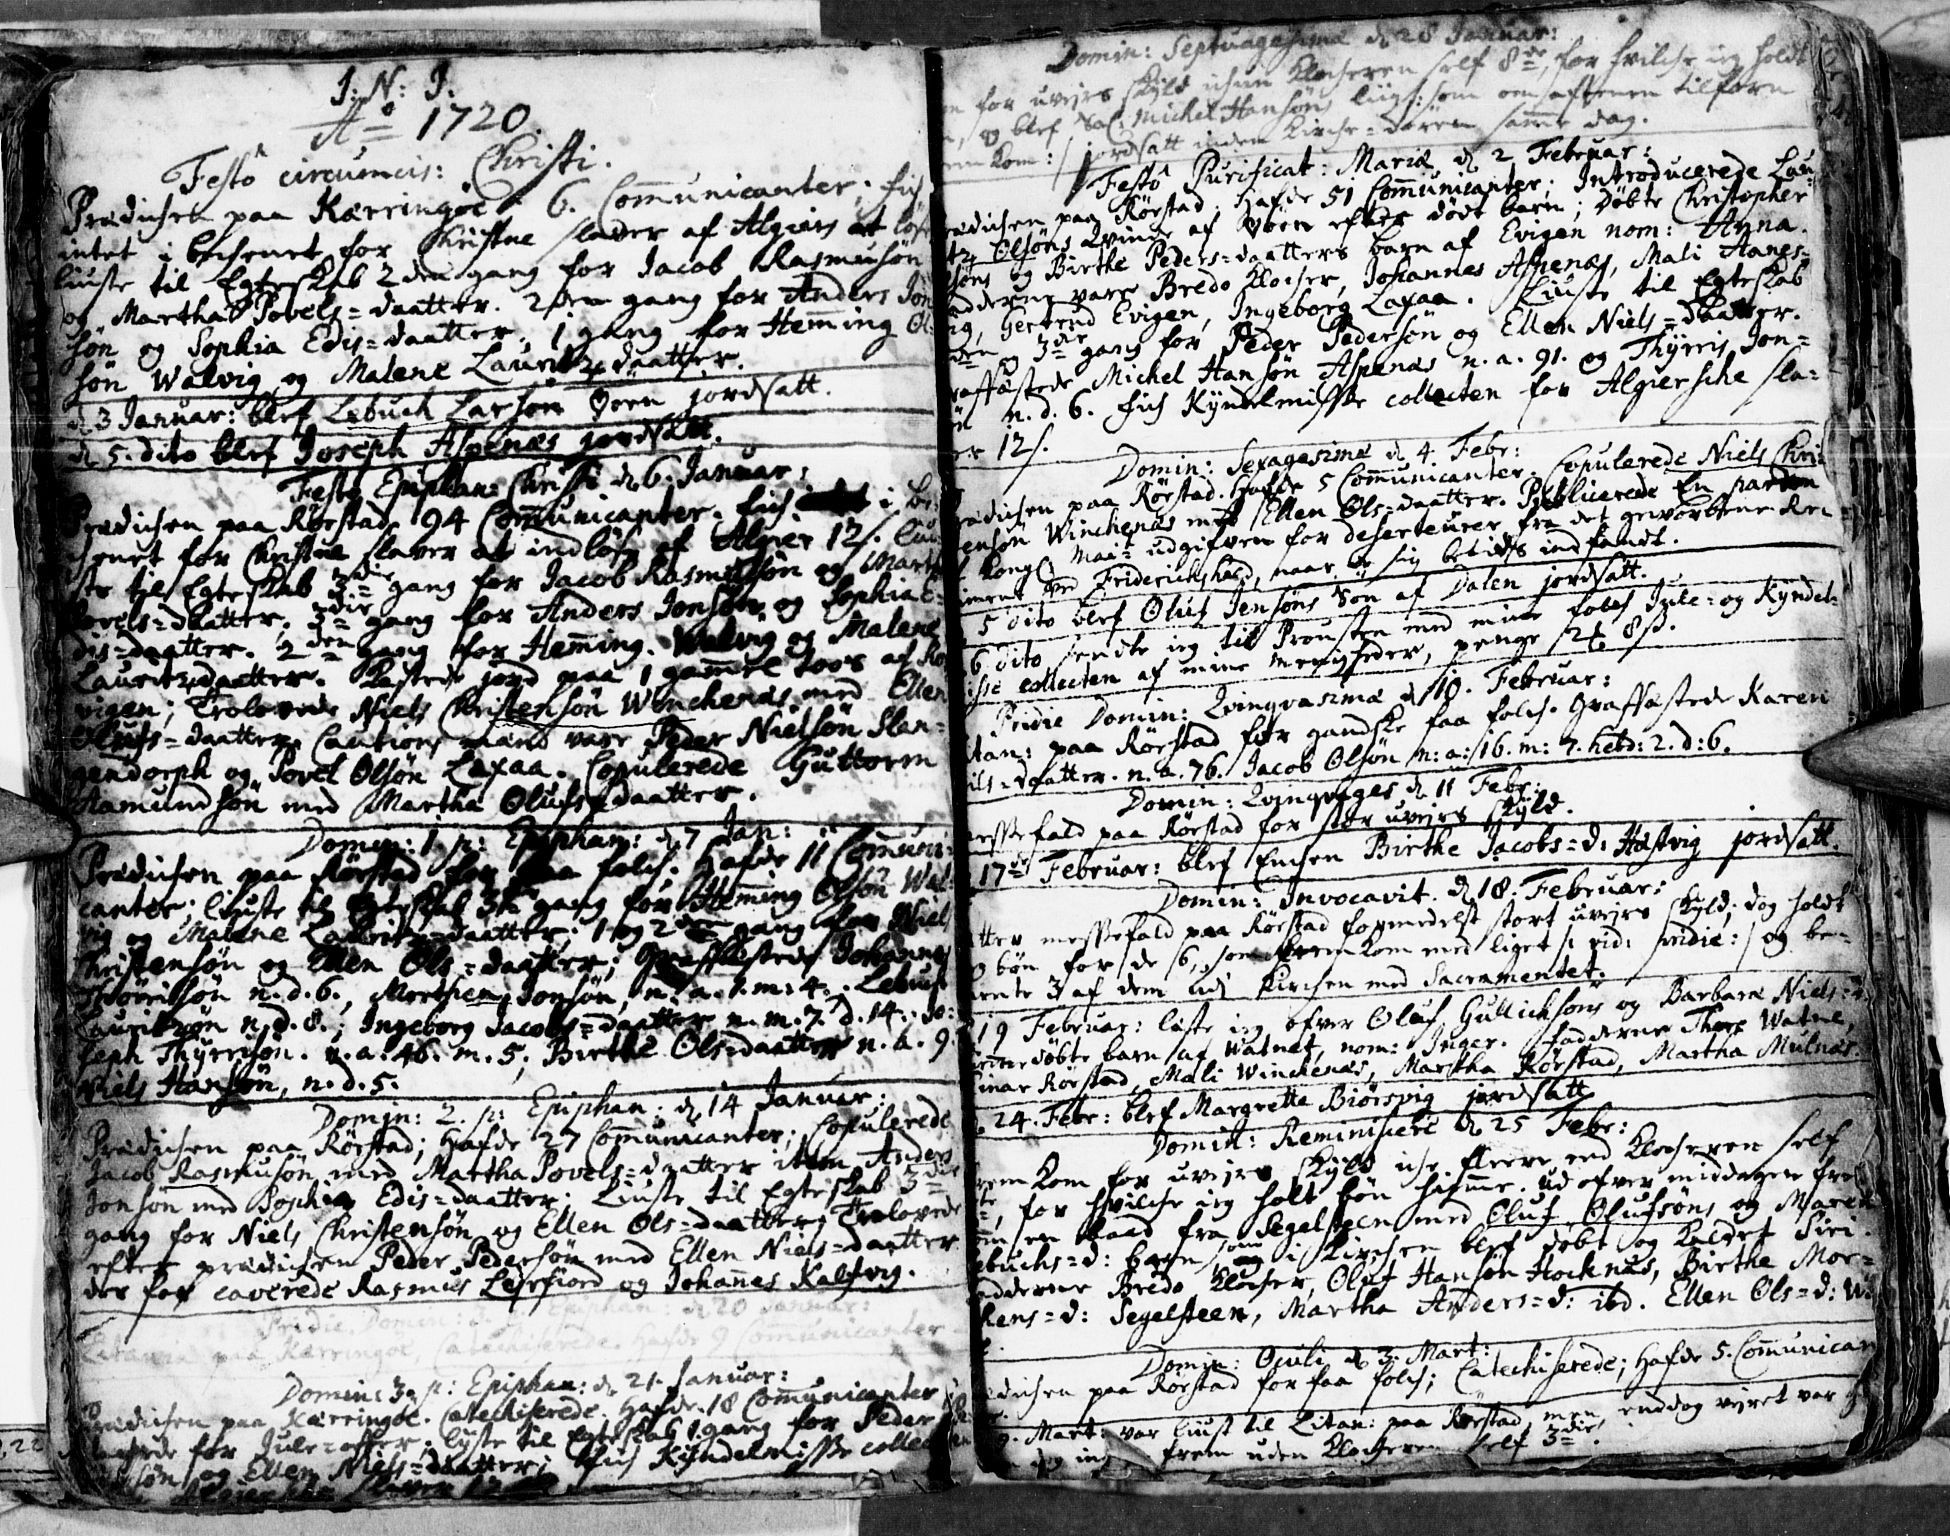 J: N: J.
Aō 1720.
Festô circumcis: Christi.
Prædichen paa Kærringöe. 6. Com̄unicanter; fich
intet i bechenet for Christne slaver af Algiers at löse
liuste til Egteskab 2den gang for Jacob Rasmusön
og Martha Povels=daatter. 2den gang for Anders Jon
sön og Sophia Edis=daatter. 1 gang for Hem̄ing Ol
sön Walvig og Malene Lauritz daatter.
d. 3 Januar: blef Lebuch Larsön Ören jordsatt.
d. 5. dito blef Joseph Aspenæs jordsatt.
Festo Epiphan: Christi d. 6. Januar:
Prædichen paa Rörstad, 94 Com̄unicanter. fich i be
chenet for Christne slaver at indlöse af Algier 12 s. liu
ste til Egteskab 3die gang for Jacob Rasmusön og Martha
Povels=daatter. 3die gang for Anders Jonsön og Sophia E=
dis=daatter. 2den gang for Hem̄ing Walvig og Malene
Lauritz daatter. Kastede jord paa 1 gam̄el
vigen; Trolovede Niels Christensön Winchenæs med Ellen
Olufs=daatter. Cautions mænd vare Peder Nielsön Slan=
gendorph og Povel Olsön Laxaa. Copulerede Guttorm
Aamundsön med Martha Olufs=daatter.
Domin: 1. p: Epiphan: d. 7 Jan:
Prædichen paa Rörstad for faa folch. Hafde 11 Com̄uni
canter; liuste til Egteskab 3die gang for Hem̄ing Olsön Wal
vig og Malene Lauritz=daatter; 1 og 2den gang for Niels
Christensön og Ellen Ols=daatter; Graffæstede Johannes
n. d. 6., Morthen Jonsön, n. a. 1. m: 4. Lebuch
Lauritzön n. d. 8.; Ingeborg Jacobs=daatter n. m. 7. d. 14. Jo
seph Thyrrisön. n. a. 46. m. 5; Birthe Ols=daatter n. a. 9.
Niels Hansön, n. d. 5.
Domin: 2. p: Epiphan: d. 14 Januar:
Prædichen paa Rörstad; Hafde 27 Com̄unicanter; Copulerede
Jacob Rasmusön med Martha Povels=daatter item Anders
Jonsön med Sophia Edis=daatter. Liuste til Egteskab 3die
gang for Niels Christensön og Ellen Ols=daatter; Trolovede
efter prædichen Peder Pedersön med Ellen Niels=daatter
der for caverede Rasmus Leyrfiord og Johan̄es Kalsvig.
Pridie Domin: 3. p. Epiphan: d. 20 Januar:
Litania paa Kærringöe, Catechiserede. Hafde 9 Com̄unicanter
Domin: 3. p: Epiphan: d. 21. Januar:
Prædichen paa Kærringöe. Catechiserede. Hafde 18 Com̄unicanter
for Jule=offer; lyste til Egteskab 1 gang for Peder
sön og Ellen Niels=daatter; fich Kyndelmisse collecten
Domin: Septuagesimæ d. 28 Januar:
for uveyrs skyld uden Klocheren self 8de, for hvilche ieg holdt
og blef Sal: Michel Hansöns som om aftenen tilforn
kom: jordsatt inden Kirche=dören sam̄e dag.
Festô Purificat: Mariæ d. 2 Februar:
Prædichen paa Rörstad. Hafde 51 Com̄unicanter; Introducerede Lau
ritz Olsöns Qvinde af Ören efter dödt barn; Döbte Christopher
söns og Birthe Peders=daatters barn af Evigen nom: Anna.
Fadderne vare Bredo Klocher, Johannes Aspenæs, Mali Hanes=
vig, Gertrud Evigen, Ingeborg Laxaa. Liuste til Egteskab
2den og 3die gang for Peder Pedersön og Ellen Niels=daatter.
Graffæstede Michel Hansön Aspenæs n. a. 91. og Thyrris Jon=
sön n. d. 6. fich Kyndelmisse collecten for Algiersche sla=
ver 12 s.
Domin: Sexagesimæ d. 4 Febr:
Prædichen paa Rörstad. Hafde 5 Com̄unicanter. Copulerede Niels Chri=
stensön Winchenæs med Ellen Ols=daatter. Publicerede En pardon
Kongl Mai: udgifven for deserteurer fra det gevorbne Re=
giment ved Friderichshald, naar de sig betids indfandt.
5 dito blef Oluf Jensöns Sön af Dalen jordsatt.
6 dito sendte ieg til Prousten med mine folch Jule= og Kyndel=
misse collecten af mine menigheder, penge 8 s.
Pridie Domin: Qvinqvasimæ d. 10. Februar:
Litan: paa Rörstad for gandske faa folch. Graffæstede Karen
Nils=daatter. n. a. 76. Jacob Olsön n: a: 16. m: 7. hebd: 2. d: 6.
Domin: Qvinqvages d. 11 Febr:
Messefald paa Rörstad for stor uveyrs skyld.
17de Februar: blef Enchen Birthe Jacobs=d: Hæstvig jordsatt.
Domin: Invocavit. d. 18. Februar:
Atter messefald paa Rörstad formedelst stort uveyrs skyld; dog holdt
bön for de 6, som frem kom med liget /: vid: pridie:/ og be=
rente 3 af dem udi Kirchen med Sacramentet.
19 Februar: læste ieg ofver Oluf Gullichsöns og Barbara Niels=d:
döbte barn af Watnet, nom: Inger. fadderne Thore Watne,
Rörstad, Mali Winchenæs, Martha Rörstad, Martha Mulnæs.
24. Febr: blef Margrette Biörsvig jordsatt
Domin: Reminiscere d. 25 Febr:
frem kom for uveyrs skyld iche fleere end Klocheren self
for hvilche ieg holt bön hiem̄e. ud ofver middagen frem
kom en baad fra Segelsteen med Oluf Olufsöns og Maren
Lebuchs=d: barn, som i Kirchen blef döbt og kaldet Siri.
fadderne Bredo Klocher, Oluf Hansön Hochnæs, Birthe Mor=
thens=d: Segelsteen, Martha Anders=d: ibd. Ellen Ols=d:
Domin: Oculi d. 3. Mart:
Prædichen paa Rörstad for faa folch; Catechiserede; Hafde 5. Com̄unican
9. Mart: var liust til Litan: paa Rörstad, men enddog veyret var
frem uden Klocheren self 3die.